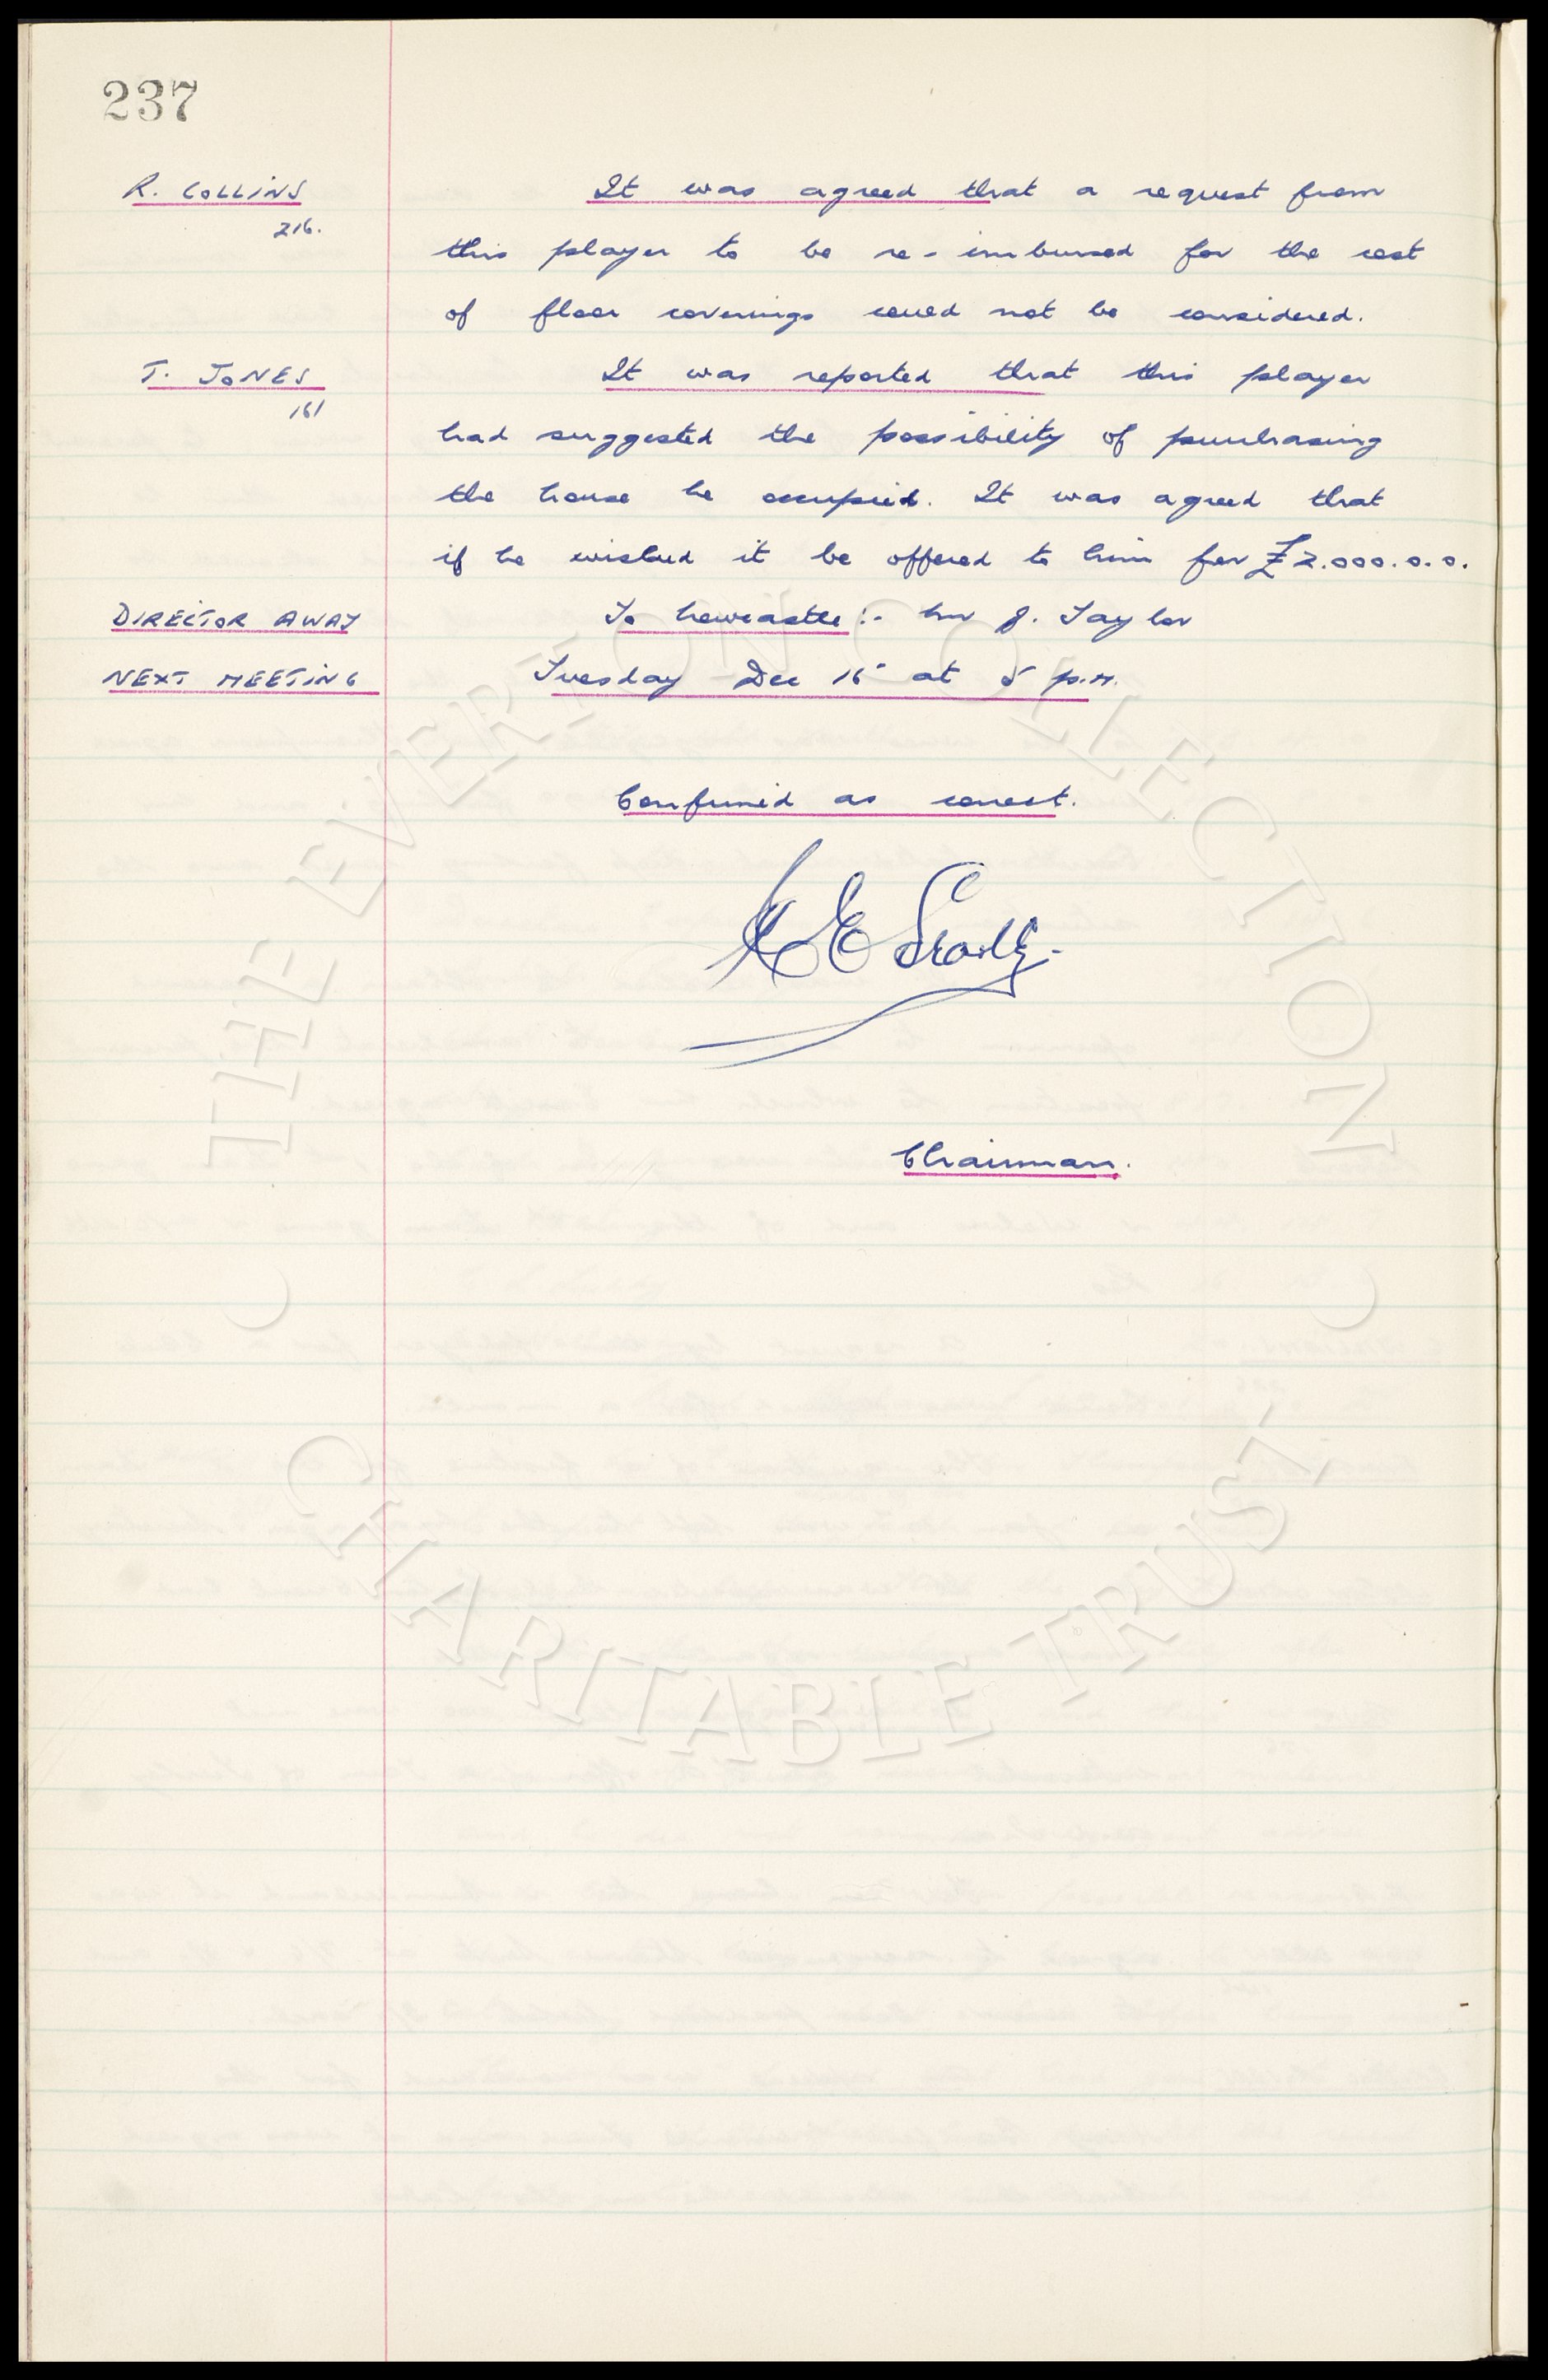 237
R. COLLINS
216.
It was agreed that a request from
this player to be re-imbursed for the cost
of floor coverings could not be considered.
T. JONES
161
It was reported that this player
had suggested the possibility of purchasing
the house he occupied. It was agreed that
if he wished it be offered to him for £2.000.0.0.
DIRECTOR AWAY
To Newcastle:- Mr J. Taylor
NEXT MEETING
Tuesday Dec 15 at 5 p.m.
Confirmed as correct.
Chairman.
THE EVERTON COLLECTION
CHARITABLE TRUST